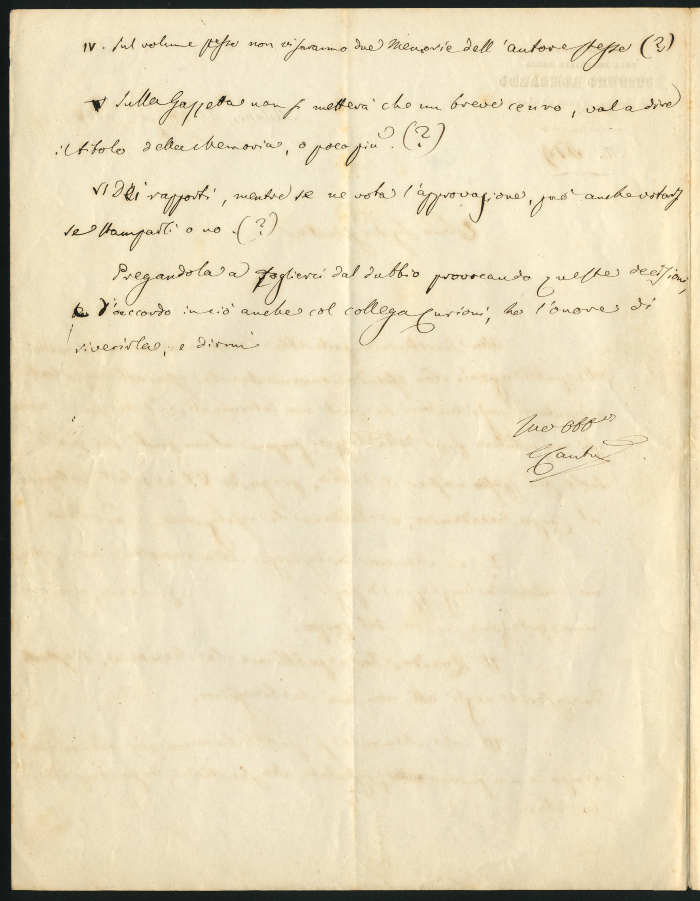 IV. Sul volume stesso non vi saranno due Memorie dell'autore stesso (?)
V Sulla Gazzetta non si metterà che un breve cenno, val a dire
il titolo della Memoria, o poco più. (?)
VI Dei rapporti, mentre se ne vota l'approvazione, può anche votarsi
se stamparli o no. (?)
Pregandola a toglierci dal dubbio provocando queste decisioni,
d'accordo in ciò anche col collega Curioni, ho l'onore di
riverirla, e dirmi
Suo obbmo
CCantù